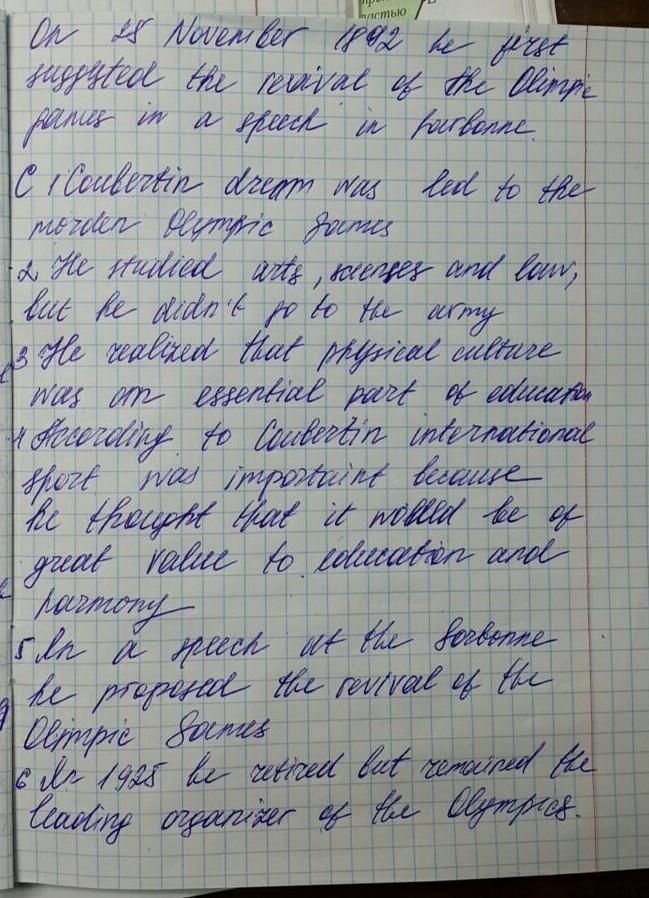 тастью
On 25 November 1892 he first
suggested the revival of the Olimpic
games in a speech in Sorbonne.
C 1 Coubertin dream was led to the
morden Olympic Games
2 He studied arts, scienses and law,
but he didn't go to the army
3 He realized that physical culture
was an essential part of education
4 According to Coubertin international
sport was importaint because
he thought that it would be of
great value to education and
harmony
5 In a speech at the Sorbonne
he proposed the revival of the
Olympic Games
6 In 1925 he retired but remained the
leading organizer of the Olympics.